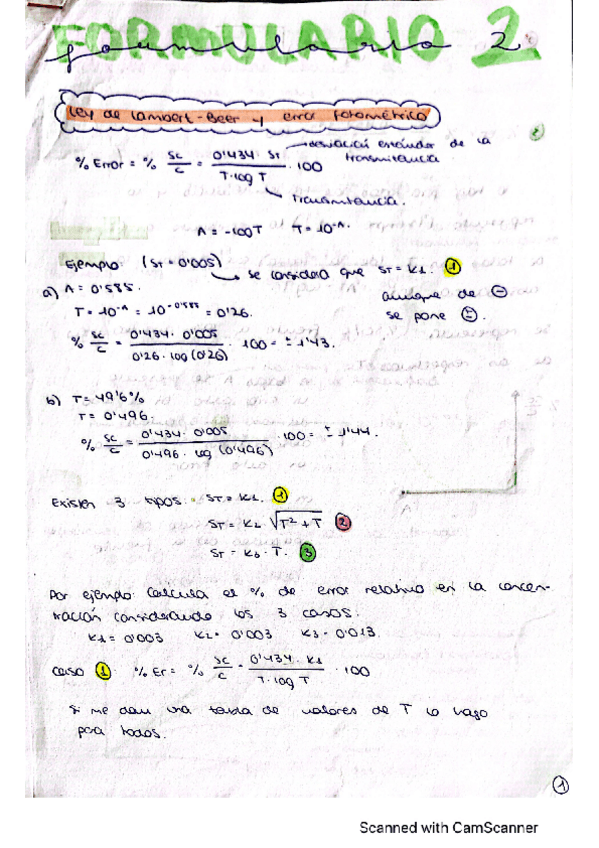 FORMULARIO 2
formulario 2
Ley de Lambert-Beer y error fotométrico
% Error = % sc/c = 0'434 · ST / T·log T · 100
→ desviación estándar de la transmitancia
Transmitancia.
A = -log T T = 10^-A.
Ejemplo (ST = 0'005) → se considera que ST = K1. ①
a) A = 0'585. aunque dé ⊖
T = 10^-A = 10^-0'585 = 0'26. se pone ±.
% sc/c = 0'434 · 0'005 / 0'26 · log (0'26) · 100 = ± 1'43.
b) T = 49'6%
T = 0'496.
% sc/c = 0'434 · 0'005 / 0'496 · log (0'496) · 100 = ± 1'44.
A
Existen 3 tipos: ST = K1. ①
ST = K2 · √T² + T ②
ST = K3 · T. ③
Por ejemplo: Calcula el % de error relativo en la concen-
tración considerando los 3 casos:
K1 = 0'003 K2 = 0'003 K3 = 0'013
caso ① % Er = % sc/c = 0'434 · K1 / T·log T · 100
Si me dan una tanda de valores de T lo hago
para todos.
①
Scanned with CamScanner